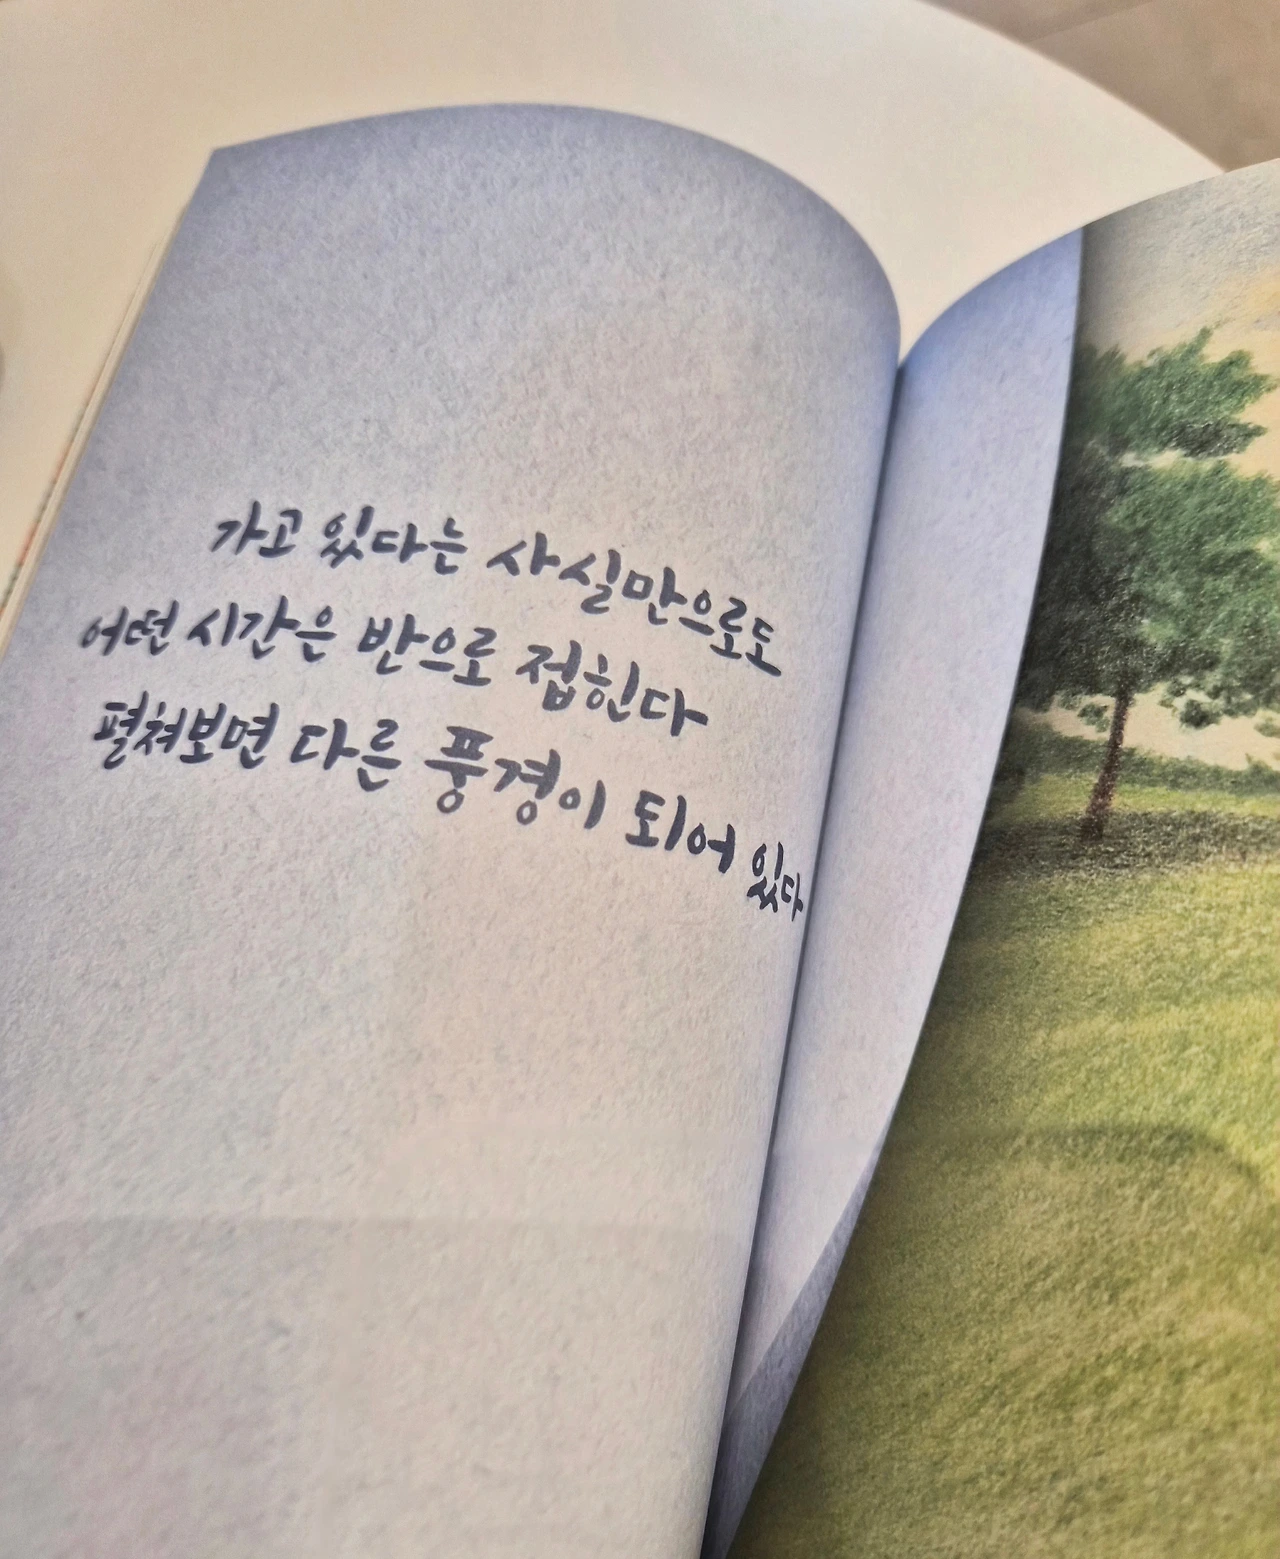 가고 있다는 사실만으로도
어떤 시간은 반으로 접힌다
펼쳐보면 다른 풍경이 되어 있다